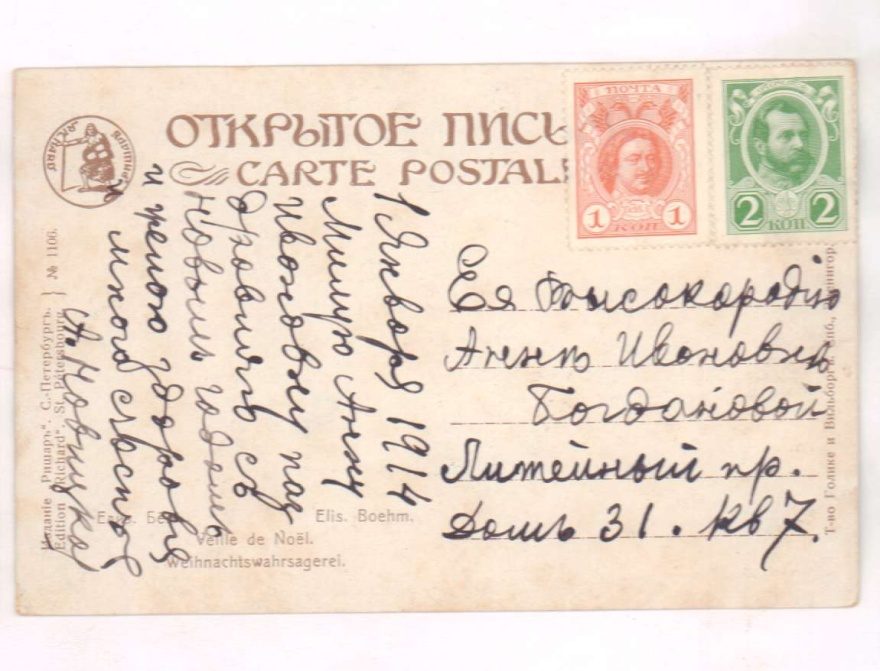 ОТКРЫТОЕ ПИСЬ
CARTE POSTAL
ПОЧТА
1 1
КОП
2 2
КОП
РИШАРЪ
RICHARD
Ея Высокородію
Аннѣ Ивановнѣ
Богдановой
Литейный пр.
Домъ 31. кв 7.
1 Января 1914
Милую Анну
Ивановну поз
дравляю съ
Новымъ годомъ
и желаю здоровья
и много счастья
А. Новицкая
Elis. Boehm.
Veille de Noël.
Weihnachtswahrsagerei.
Изданіе „Ришаръ“. С.-Петербургъ.
Edition „Richard“. St. Pétersbourg.
№ 1106.
Т-во Голике и Вильборгъ. Спб., Звенигор.